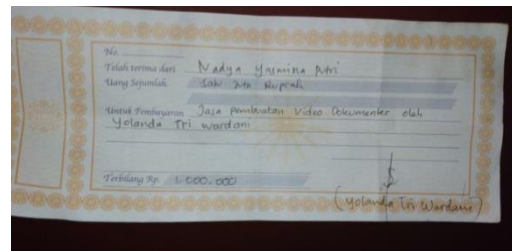 No.
Telah terima dari Nadya Yasmina Putri
Uang Sejumlah Satu Juta Rupiah
Untuk Pembayaran Jasa Pembuatan Video Dokumenter oleh
Yolanda Tri Wardani
Terbilang Rp. 1.000.000
(Yolanda Tri Wardani)